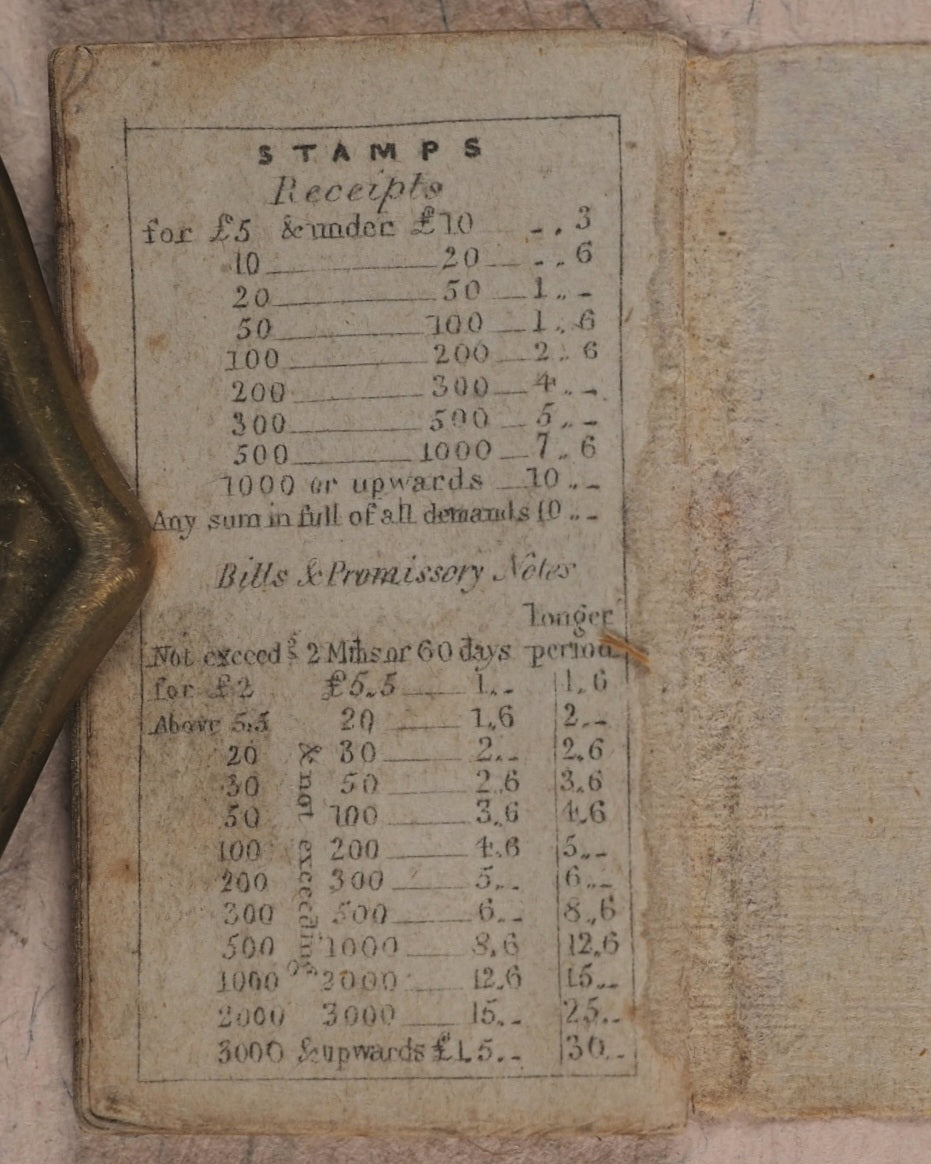 STAMPS
Receipts
for £5 & under £10 - . . 3
10 20 - . . 6
20 50 1 . . -
50 100 1 . . 6
100 200 2 . . 6
200 300 4 . . -
300 500 5 . . -
500 1000 7 . . 6
1000 or upwards 10 . . -
Any sum in full of all demands 10 . . -
Bills & Promissory Notes
longer
Not exceedg 2 Mths or 60 days period
for £2 £5.5 1 . . - 1 . . 6
Above 5.5 20 1 . 6 2 . . -
20 & not exceeding 30 2 . . - 2 . 6
30 50 2 . 6 3 . 6
50 100 3 . 6 4 . 6
100 200 4 . 6 5 . . -
200 300 5 . . - 6 . . -
300 500 6 . . - 8 . . 6
500 1000 8 . 6 12 . 6
1000 2000 12 . 6 15 . . -
2000 3000 15 . . - 25 . . -
3000 & upwards £1.5 . . - 30 . . -